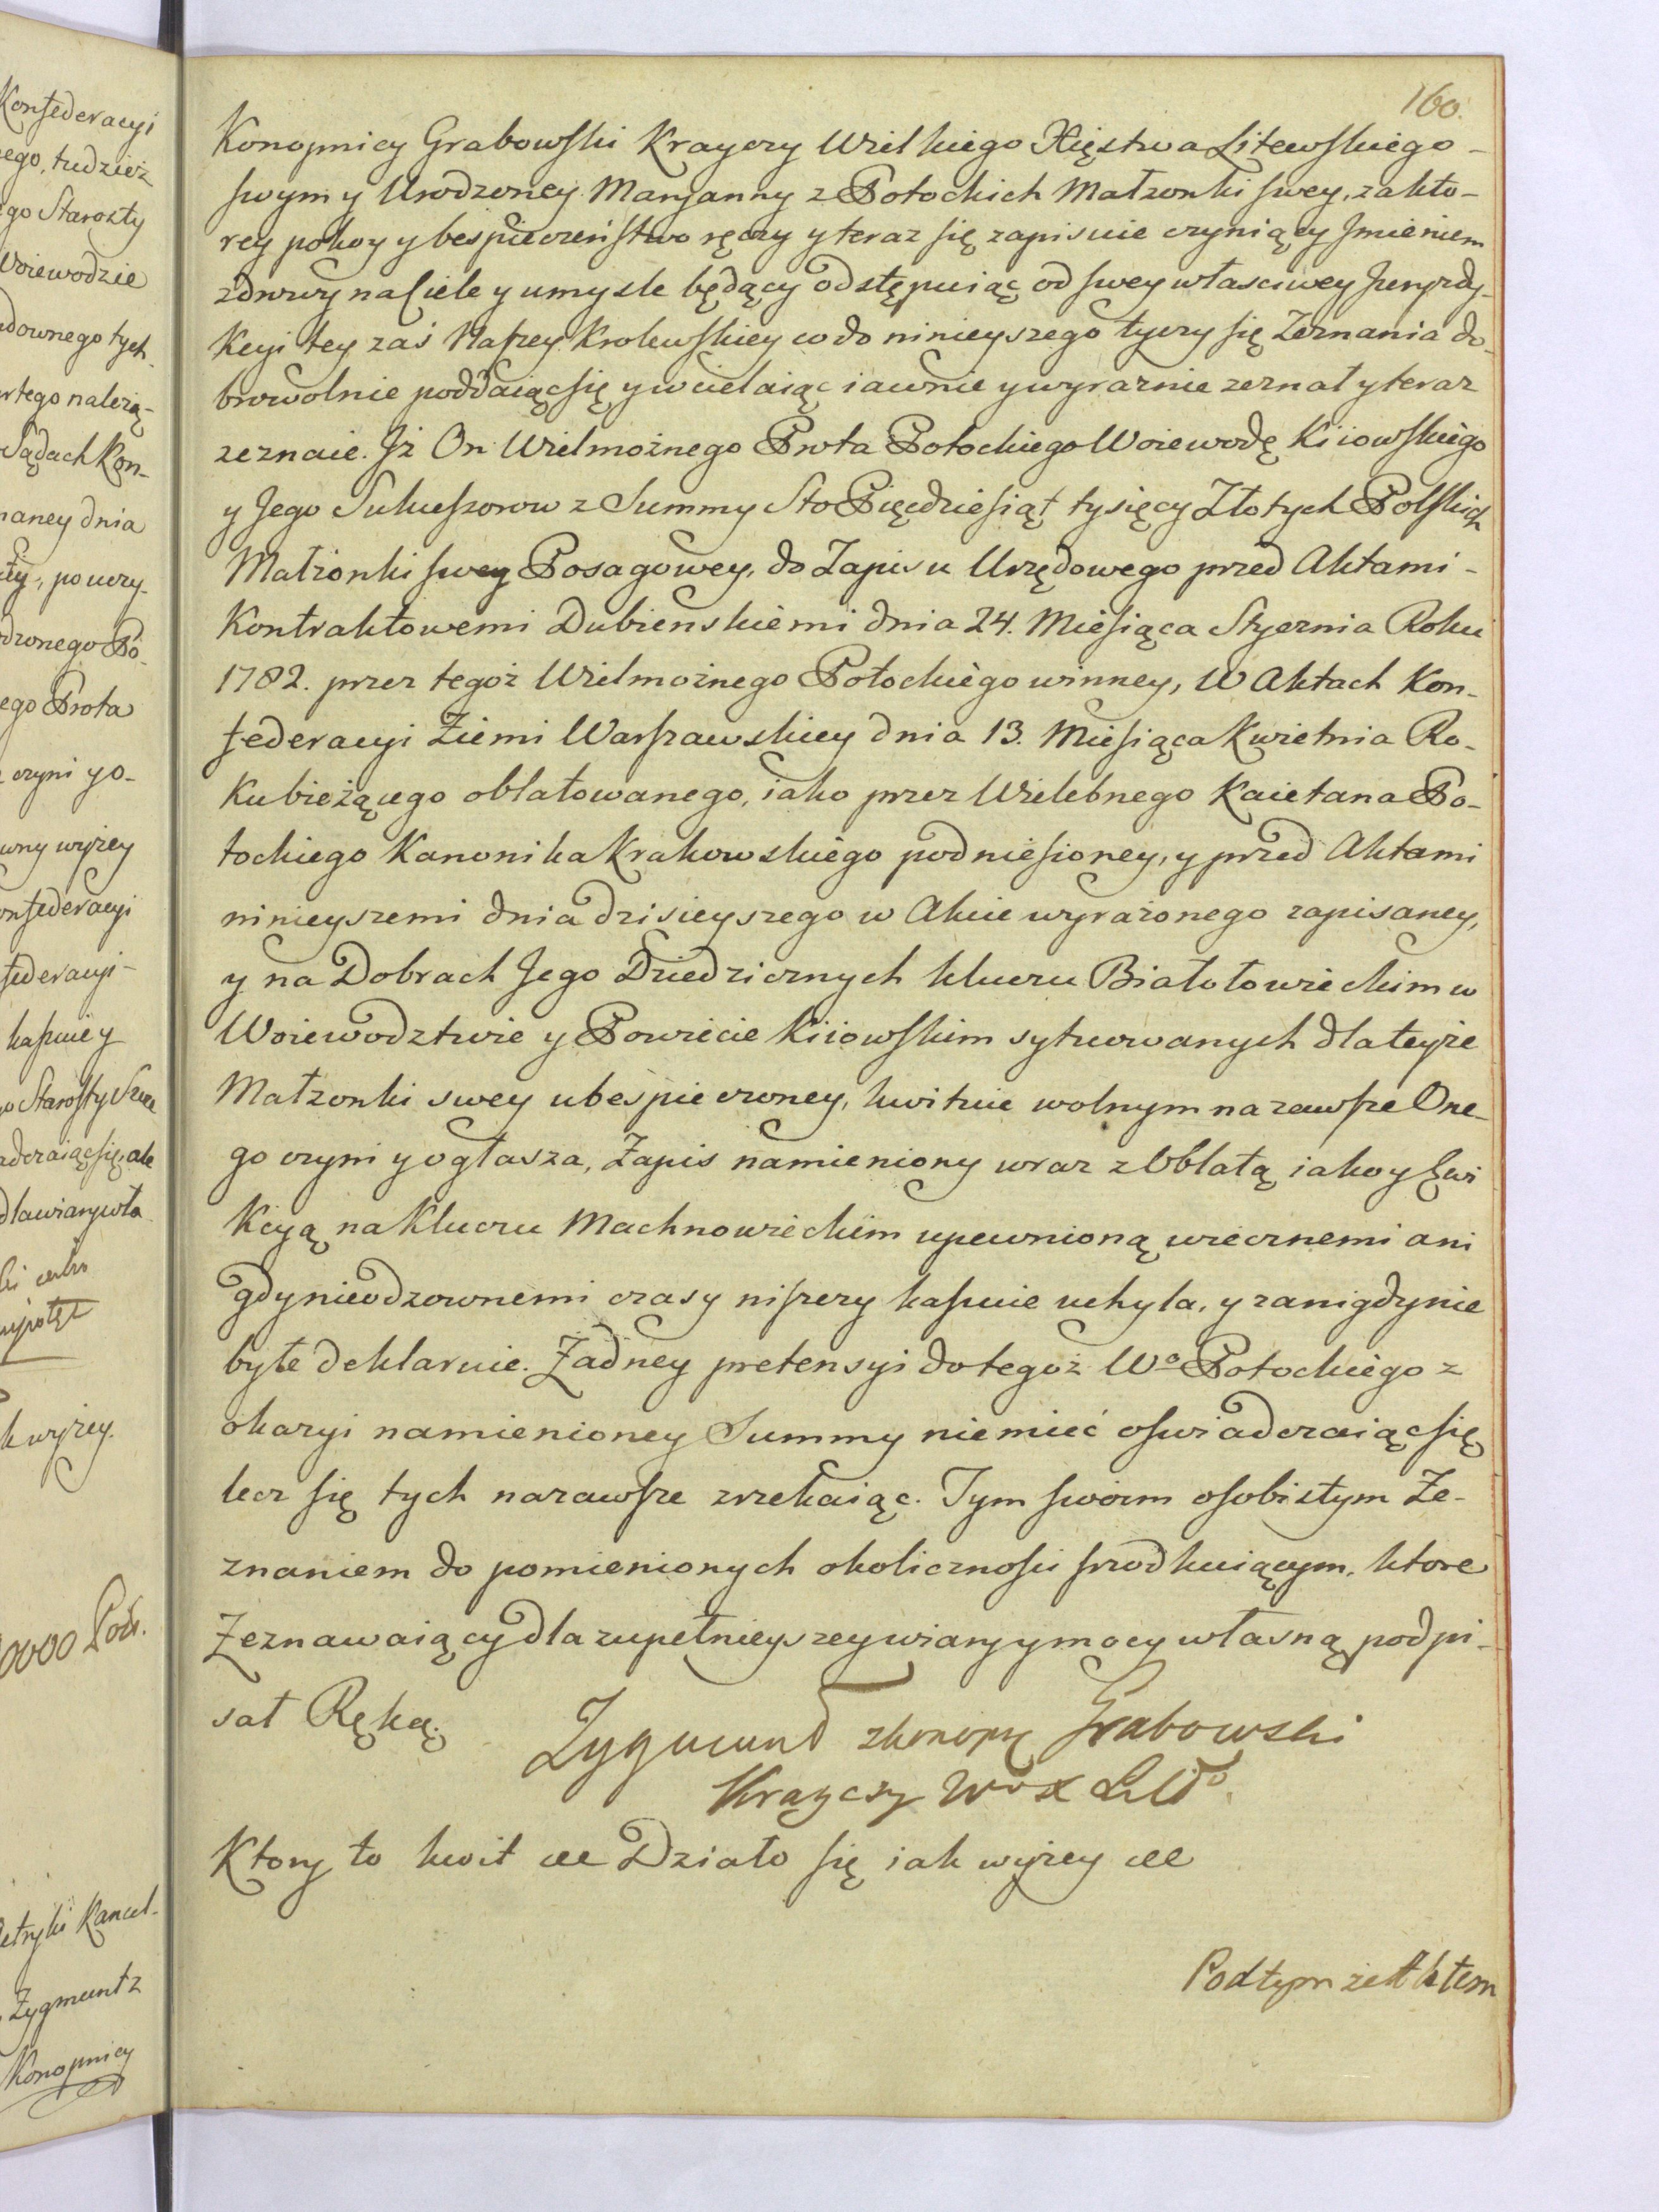 Konfederacyi
ego, tudziesz
go Starosty
Woiewodzie
downego tych
rtego należą-
Sądach Kon-
naney dnia
ły, po uczy-
dzonego Po-
ego Prota
czyni y o-
wny wyżey
onfederacyi
federacyi-
kassuie y
o Starosty
adczaiąc się, ale
dla wiary wła
k wyżey.
0000 Pol.
etryki Kancel-
Zygmunt z
Konopnicy
160.
Konopnicy Grabowski Krayczy Wielkiego Xięstwa Litewskiego-
swym y Urodzoney Maryanny z Potockich Małzonki swey, za kto-
rey pokoy y bespieczeństwo ręczy y teraz się zapisuie czyniący Imieniem
zdrowy na Ciele y umyśle będący odstępuiąc od swey właściwey Juryzdy-
kcyi tey zaś Naszey Krolewskiey co do ninieyszego tyczy się Zeznania do-
browolnie poddaiąc się y wcielaiąc iawnie y wyraznie zeznał y teraz
zeznaie. Iż On Wielmożnego Prota Potockiego Woiewodę Kiiowskiego
y Jego Sukcessorow z Summy Sto Pięcdziesiąt tysięcy Złotych Polskich
Małżonki swey Posagowey, do Zapisu Urzędowego przed Aktami-
Kontraktowemi Dubienskiemi dnia 24. Miesiąca Stycznia Roku
1782. przez tegoż Wielmożnego Potockiego winney, W Aktach Kon-
federacyi Ziemi Warszawskiey dnia 13. Miesiąca Kwietnia Ro-
ku bieżącego oblatowanego, iako przez Wielebnego Kaietana Po-
tockiego Kanonika Krakowskiego podniesioney, y przed Aktami
ninieyszemi dnia dzisieyszego w Akcie wyrażonego zapisaney,
y na Dobrach Jego Dziedzicznych kluczu Białołowieckim w
Woiewodztwie y Powiecie Kiiowskim sytuowanych dla teyże
Małzonki swey ubespieczoney, kwituie wolnym na zawsze One-
go czyni y ogłasza, Zapis namieniony wraz z Oblatą iako y Ewi
kcyą na Kluczu Machnowieckim upewnioną wiecznemi ani
gdy nieodzownemi czasy niszczy kassuie uchyla, y za nigdy nie
byłe deklaruie. Żadney pretensyi do tegoż Wo Potockiego z
okazyi namienioney Summy nie mieć oświadczaiąc się
lecz się tych nazawsze zrzekaiąc. Tym swoim osobistym Ze-
znaniem do pomienionych okoliczności srodkuiącym, ktore
Zeznawaiący dla zupełnieyszey wiary y mocy własną podpi-
sał Ręką.
Zygmunt z Konopni Grabowski
Krayczy W. X Litt°.
Ktory to kwit etc Działo się iak wyżey etc
Pod tym że Aktem